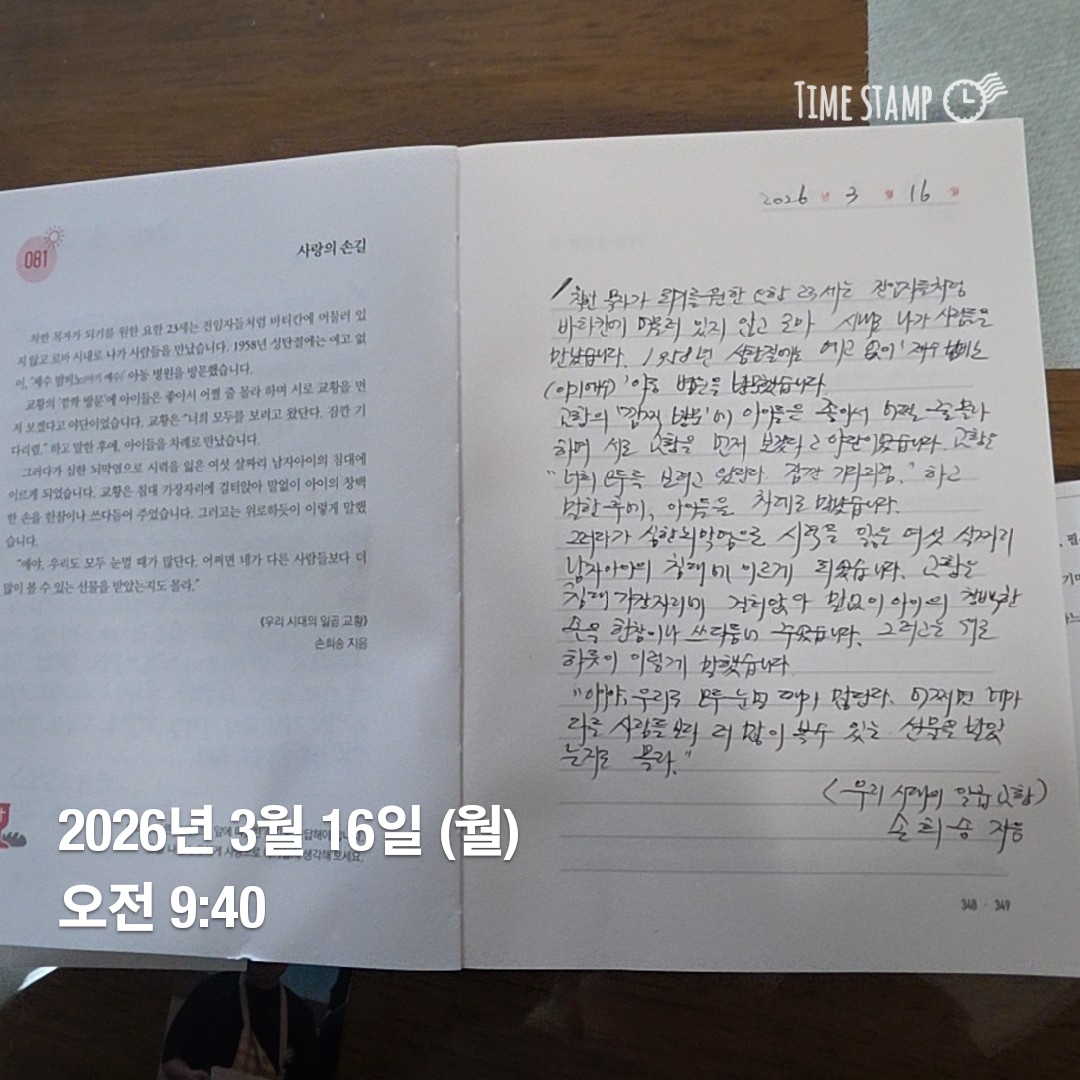 TIME STAMP
081
사랑의 손길
착한 목자가 되기를 원한 요한 23세는 전임자들처럼 바티칸에 머물러 있
지 않고 로마 시내로 나가 사람들을 만났습니다. 1958년 성탄절에는 예고 없
이, '제수 밤비노(아기 예수)' 아동 병원을 방문했습니다.
교황의 '깜짝 방문'에 아이들은 좋아서 어쩔 줄 몰라 하며 서로 교황을 먼
저 보겠다고 야단이었습니다. 교황은 "너희 모두를 보려고 왔단다. 잠깐 기
다리렴." 하고 말한 후에, 아이들을 차례로 만났습니다.
그러다가 심한 뇌막염으로 시력을 잃은 여섯 살짜리 남자아이의 침대에
이르게 되었습니다. 교황은 침대 가장자리에 걸터앉아 말없이 아이의 창백
한 손을 한참이나 쓰다듬어 주었습니다. 그러고는 위로하듯이 이렇게 말했
습니다.
"얘야, 우리도 모두 눈멀 때가 많단다. 어쩌면 네가 다른 사람들보다 더
많이 볼 수 있는 선물을 받았는지도 몰라."
《우리 시대의 일곱 교황》
손희송 지음
2026 년 3 월 16 일
착한 목자가 되기를 원한 요한 23세는 전임자들처럼
바티칸에 머물러 있지 않고 로마 시내로 나가 사람들을
만났습니다. 1958년 성탄절에는 예고 없이 '제수 밤비노
(아기예수)' 아동 병원을 방문했습니다.
교황의 '깜짝 방문'에 아이들은 좋아서 어쩔 줄 몰라
하며 서로 교황을 먼저 보겠다고 야단이었습니다. 교황은
"너희 모두를 보려고 왔단다. 잠깐 기다리렴." 하고
말한 후에, 아이들을 차례로 만났습니다.
그러다가 심한 뇌막염으로 시력을 잃은 여섯 살짜리
남자아이의 침대에 이르게 되었습니다. 교황은
침대 가장자리에 걸터앉아 말없이 아이의 창백한
손을 한참이나 쓰다듬어 주었습니다. 그러고는 위로
하듯이 이렇게 말했습니다
"얘야, 우리도 모두 눈멀 때가 많단다. 어쩌면 네가
다른 사람들보다 더 많이 볼 수 있는 선물을 받았
는지도 몰라."
(우리 시대의 일곱 교황)
손희송 지음
348 · 349
2026년 3월 16일 (월)
오전 9:40